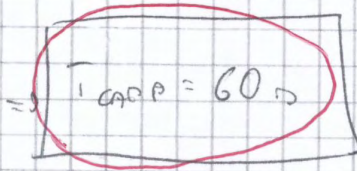 => T CAPP = 60 s